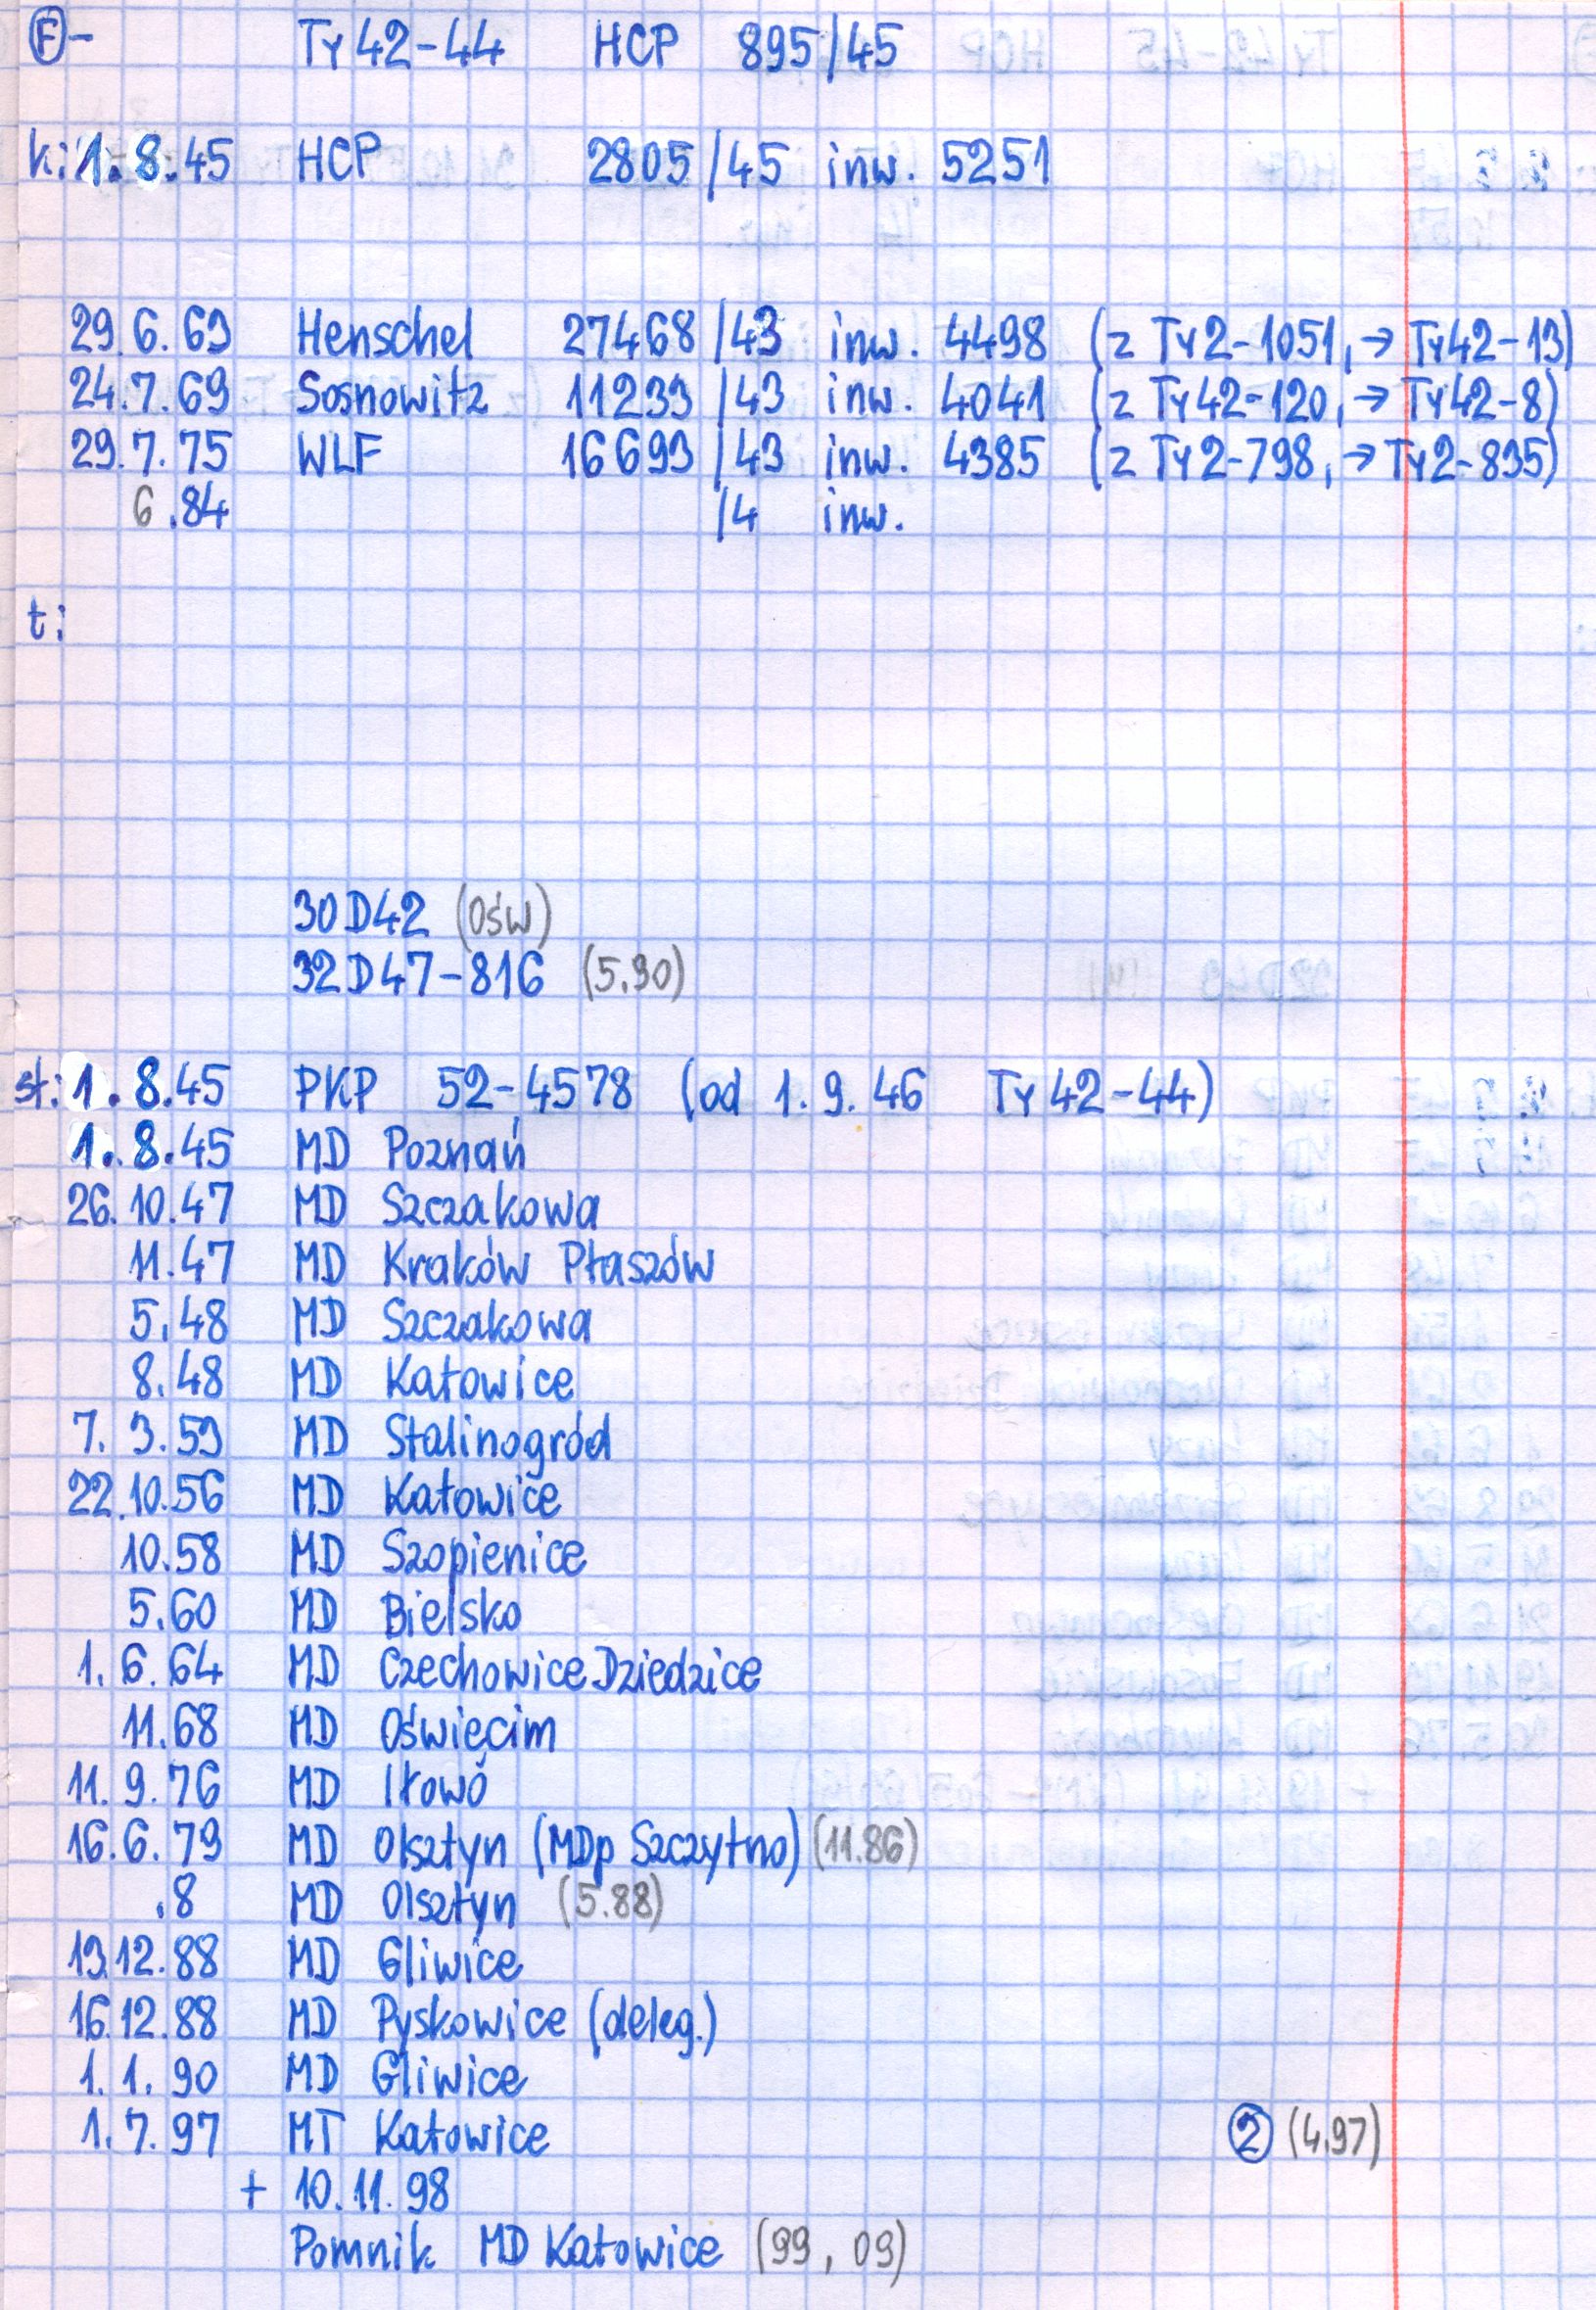 F - Ty42-44 HCP 895/45
k: 1.8.45 HCP 2805/45 inw. 5251
29.6.69 Henschel 27468/43 inw. 4498 (z Ty2-1051, → Ty42-13)
24.7.69 Sosnowitz 11233/43 inw. 4041 (z Ty42-120, → Ty42-8)
29.7.75 WLF 16693/43 inw. 4385 (z Ty2-798, → Ty2-835)
6.84 /4 inw.
t:
30D42 (Ośw)
32D47-816 (5.90)
st: 1.8.45 PKP 52-4578 (od 1.9.46 Ty42-44)
1.8.45 MD Poznań
26.10.47 MD Szczakowa
11.47 MD Kraków Płaszów
5.48 MD Szczakowa
8.48 MD Katowice
7.3.53 MD Stalinogród
22.10.56 MD Katowice
10.58 MD Szopienice
5.60 MD Bielsko
1.6.64 MD Czechowice Dziedzice
11.68 MD Oświęcim
11.9.76 MD Iłowo
16.6.79 MD Olsztyn (MDp Szczytno) (11.86)
.8 MD Olsztyn (5.88)
13.12.88 MD Gliwice
16.12.88 MD Pyskowice (deleg.)
1.1.90 MD Gliwice
1.7.97 MT Katowice 2 (4.97)
+ 10.11.98
Pomnik MD Katowice (99, 09)